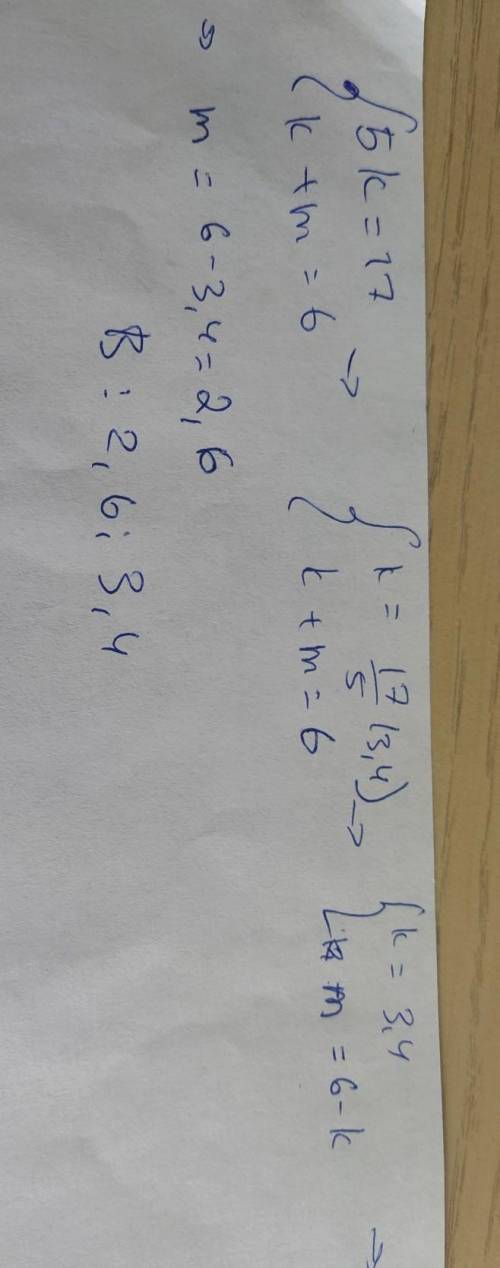 { 5k = 17
k + m = 6 →
{ k = 17/5 (3,4)
k + m = 6 →
{ k = 3,4
m = 6 - k →
⇒ m = 6 - 3,4 = 2,6
B : 2,6; 3,4